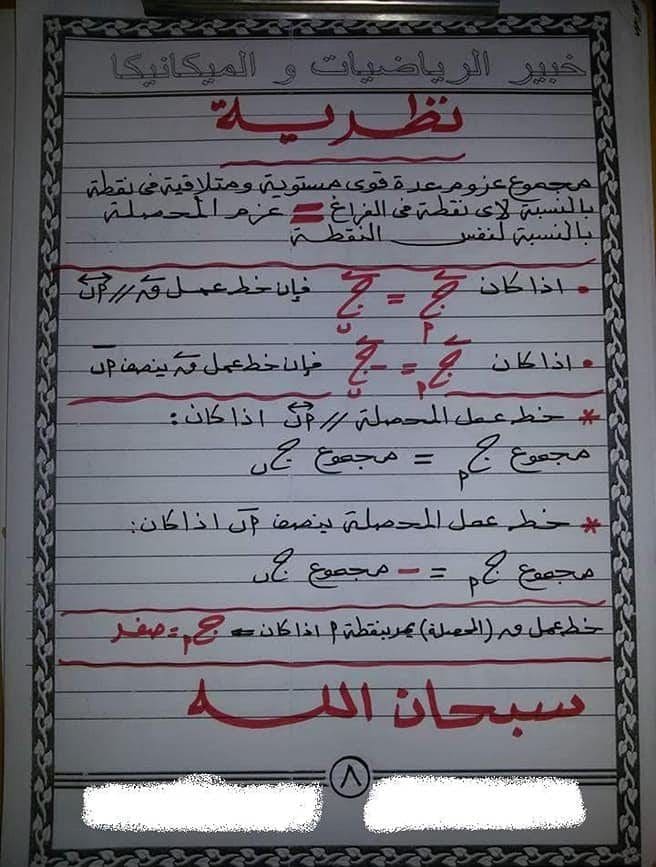 خبير الرياضيات و الميكانيكا
نظرية
مجموع عزوم عدة قوى مستوية ومتلاقية فى نقطة
بالنسبة لاى نقطة فى الفراغ = عزم المحصلة
بالنسبة لنفس النقطة
• اذا كان ج م = ج ب فإن خط عمل ق // م ب
• اذا كان ج م = - ج ب فإن خط عمل ق ينصف م ب
* خط عمل المحصلة // م ب اذا كان:
مجموع ج م = مجموع ج ب
* خط عمل المحصلة ينصف م ب اذا كان:
مجموع ج م = - مجموع ج ب
خط عمل ق (المحصلة) يمر بنقطة م اذا كان ج م = صفر
سبحان الله
٨